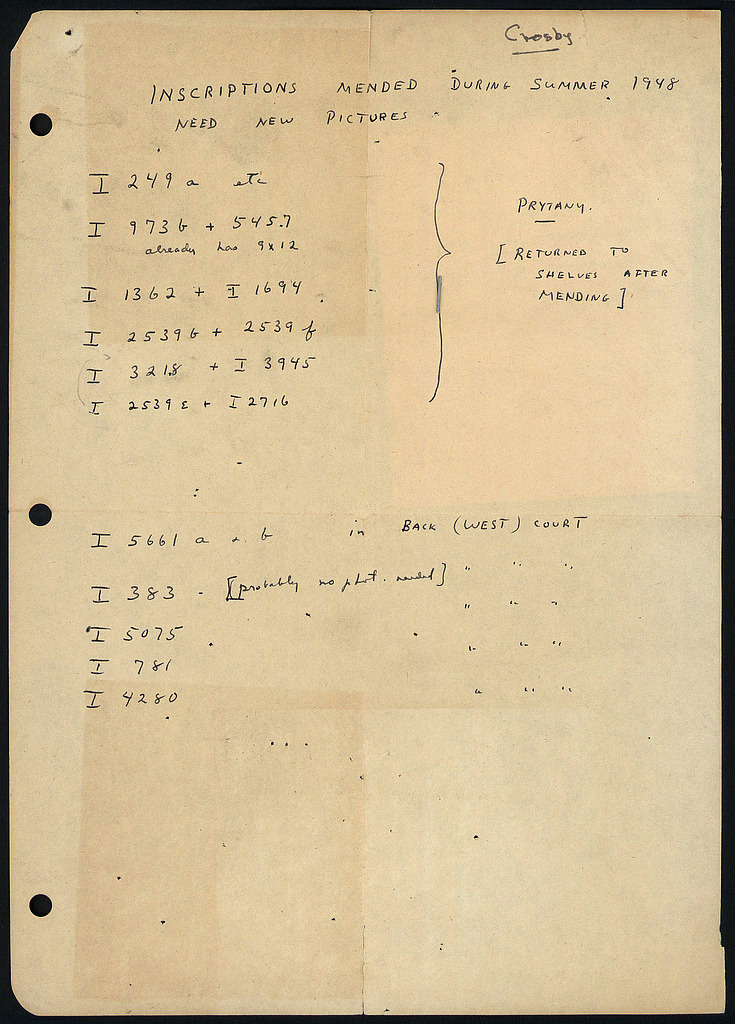 Crosby
INSCRIPTIONS MENDED DURING SUMMER 1948
NEED NEW PICTURES
I 249 a etc
I 973 b + 5457
already has 9x12
PRYTANY.
[RETURNED TO
SHELVES AFTER
MENDING]
I 1362 + I 1694
I 2539 b + 2539 f
I 3218 + I 3945
I 2539 E + I 2716
I 5661 a + b in BACK (WEST) COURT
I 383 - [probably no phot. needed] " " "
I 5075 " " "
I 781 " " "
I 4280 " " "